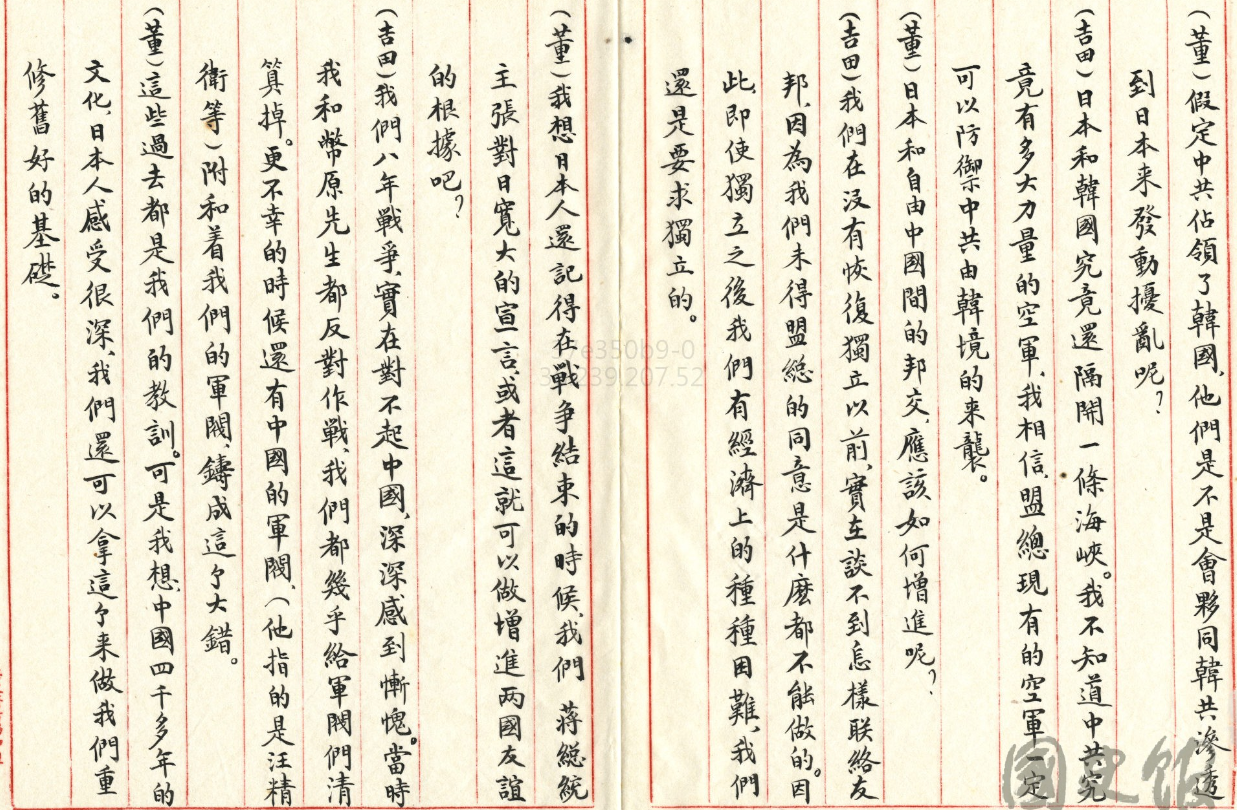 (董)假定中共佔領了韓國、他們是不是會夥同韓共滲透
到日本来發動擾亂呢?
(吉田)日本和韓國究竟還隔開一條海峽。我不知道中共究
竟有多大力量的空軍、我相信、盟總現有的空軍一定
可以防禦中共由韓境的来襲。
(董)日本和自由中國間的邦交、應該如何增進呢?
(吉田)我們在没有恢復獨立以前、實在談不到怎樣联絡友
邦、因為我們未得盟総的同意是什麽都不能做的。因
此、即使獨立之後我們有經濟上的種種困難、我們
還是要求獨立的。
(董)我想日本人還記得在戰争結束的時候、我們 蒋総統
主張對日寬大的宣言、或者這就可以做增進两國友誼
的根據吧?
(吉田)我們八年戰爭、實在對不起中國、深深感到慚愧。當時
我和幣原先生都反對作戰、我們都幾乎給軍閥們清
算掉。更不幸的時候還有中國的軍閥、(他指的是汪精
衛等)附和着我們的軍閥、鑄成這个大錯。
(董)這些過去都是我們的教訓。可是我想、中國四千多年的
文化、日本人感受很深、我們還可以拿這个来做我們重
修舊好的基礎。
國史館